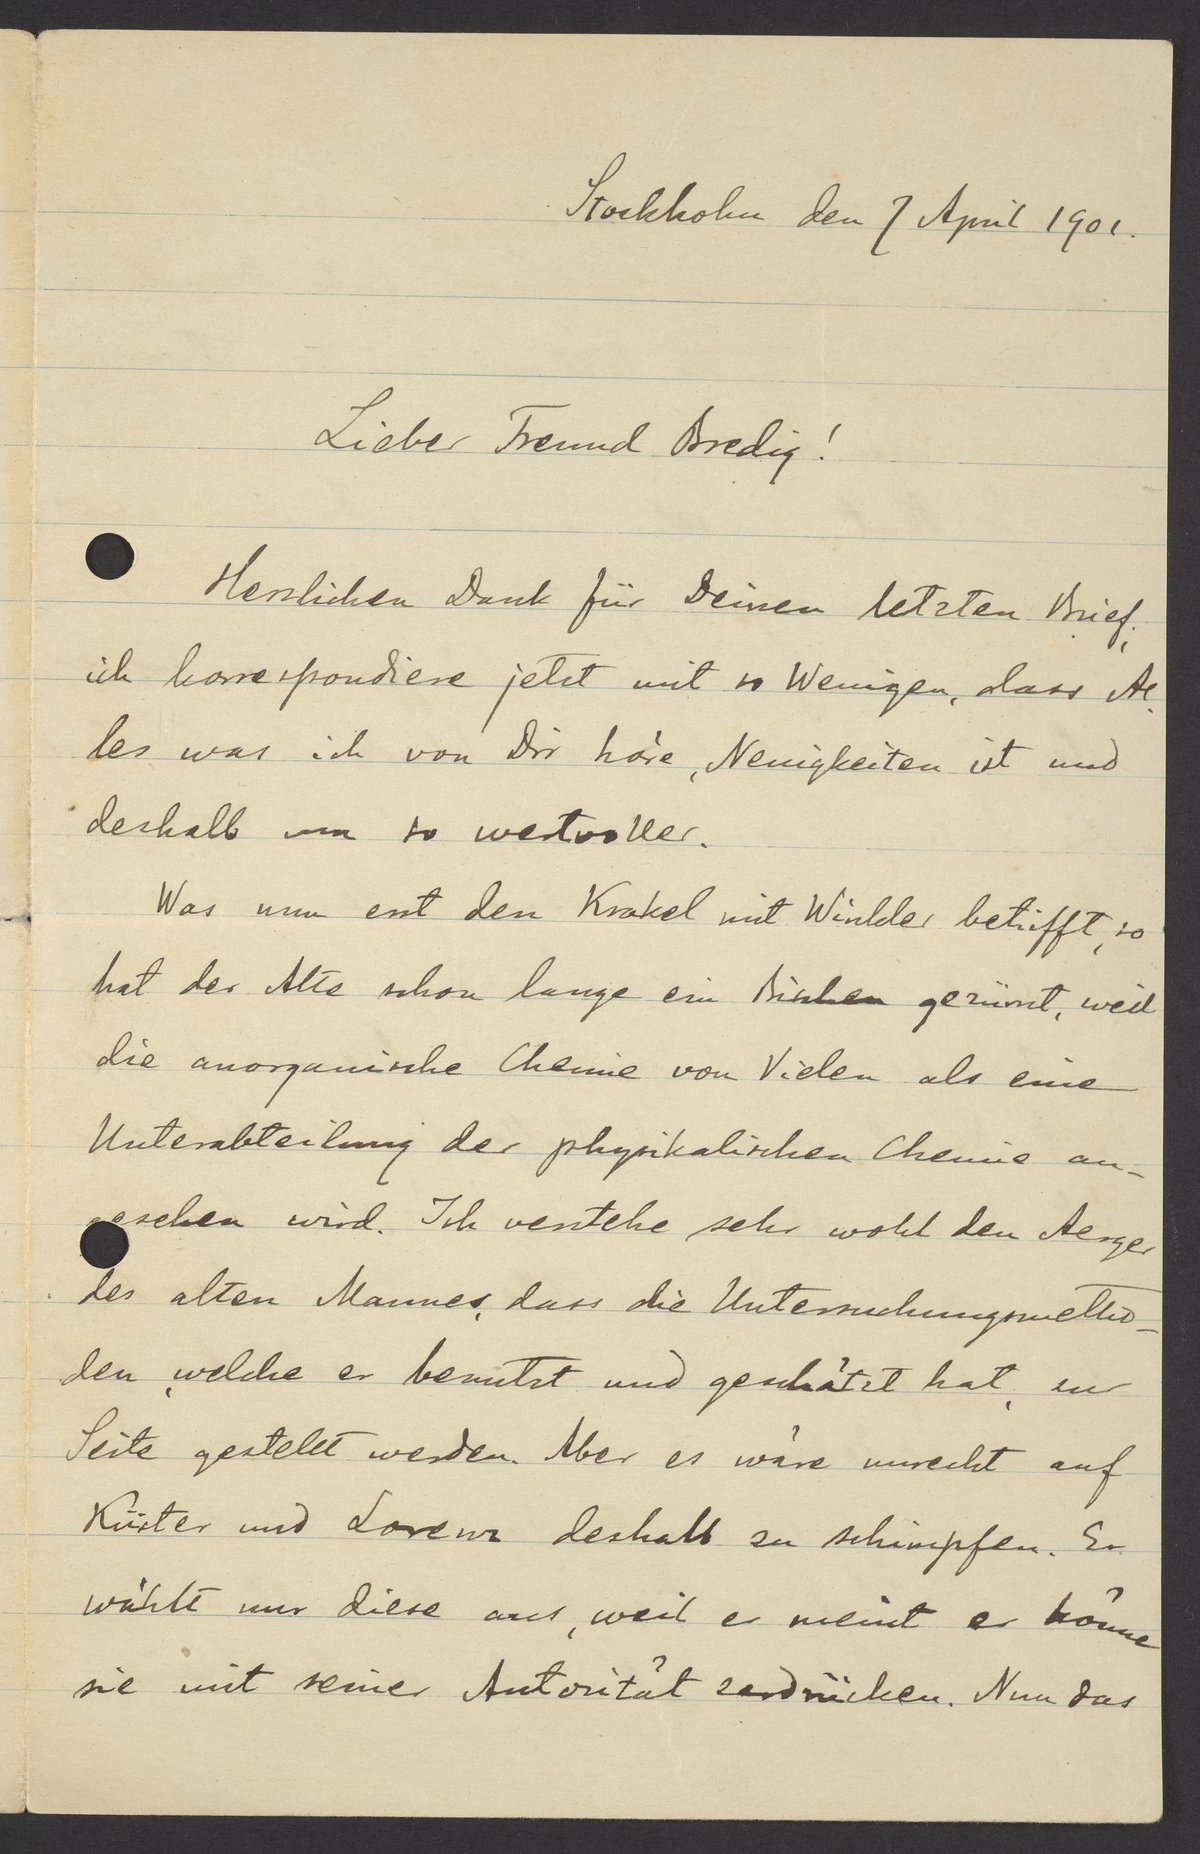 Stockholm den 7 April 1901.
Lieber Freund Bredig!
Herzlichen Dank für Deinen letzten Brief;
ich korrespondiere jetzt mit so Wenigen, dass Al-
les was ich von Dir höre, Neuigkeiten ist und
deshalb um so wertvoller.
Was nun erst den Krakel mit Winkler betrifft, so
hat der Alte schon lange ein Bischen gezürnt, weil
die anorganische Chemie von Vielen als eine
Unterabteilung der physikalischen Chemie an-
gesehen wird. Ich verstehe sehr wohl den Aerger
des alten Mannes, dass die Untersuchungsmetho-
den, welche er benutzt und geschätzt hat, zur
Seite gestellt werden. Aber es wäre unrecht auf
Küster und Lorenz deshalb zu schimpfen. Er
wählt nur diese aus, weil er meint er könne
sie mit seiner Autorität zerdrücken. Nun das